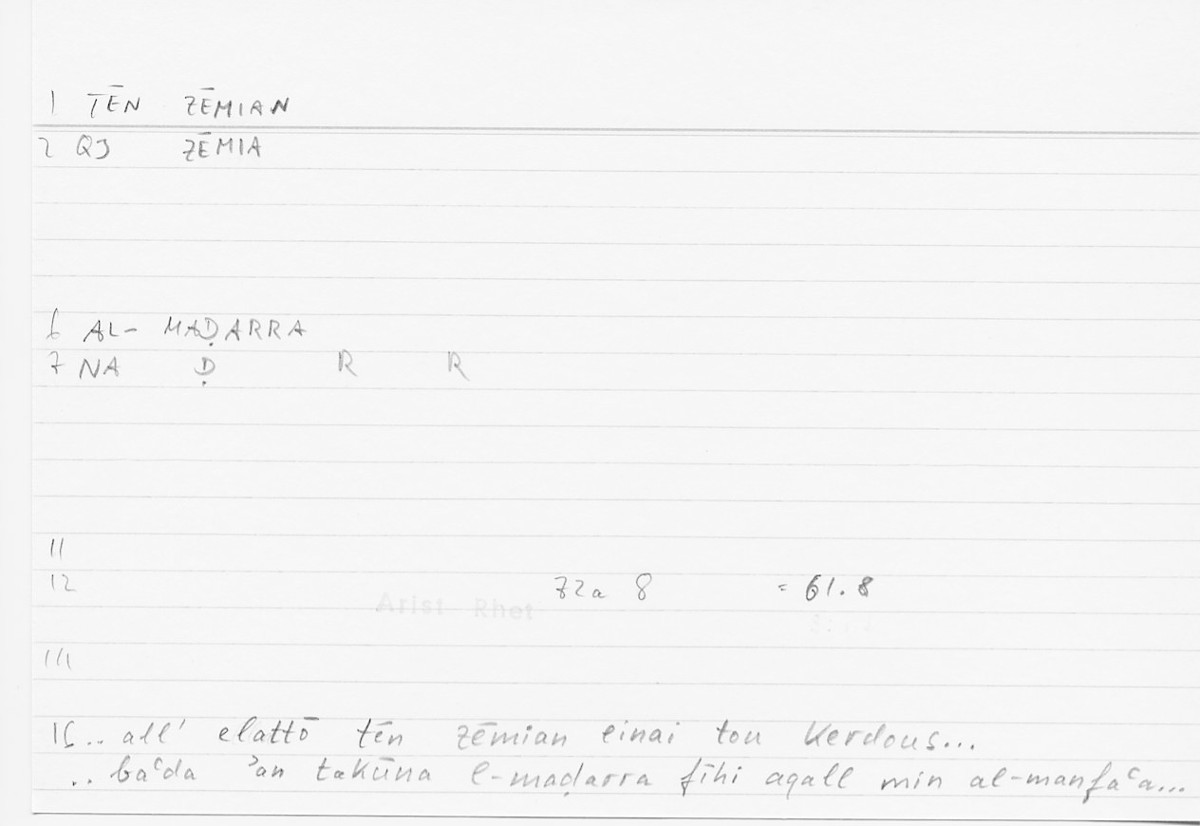 1 TĒN ZĒMIAN
2 QJ ZĒMIA
6 AL- MAḌARRA
7 NA Ḍ R R
11
12 72a 8 = 61.8
Arist Rhet
15.. all' elattō tēn zēmian einai tou kerdous...
.. baʿda ʾan takūna l-maḍarra fīhi aqall min al-manfaʿa...